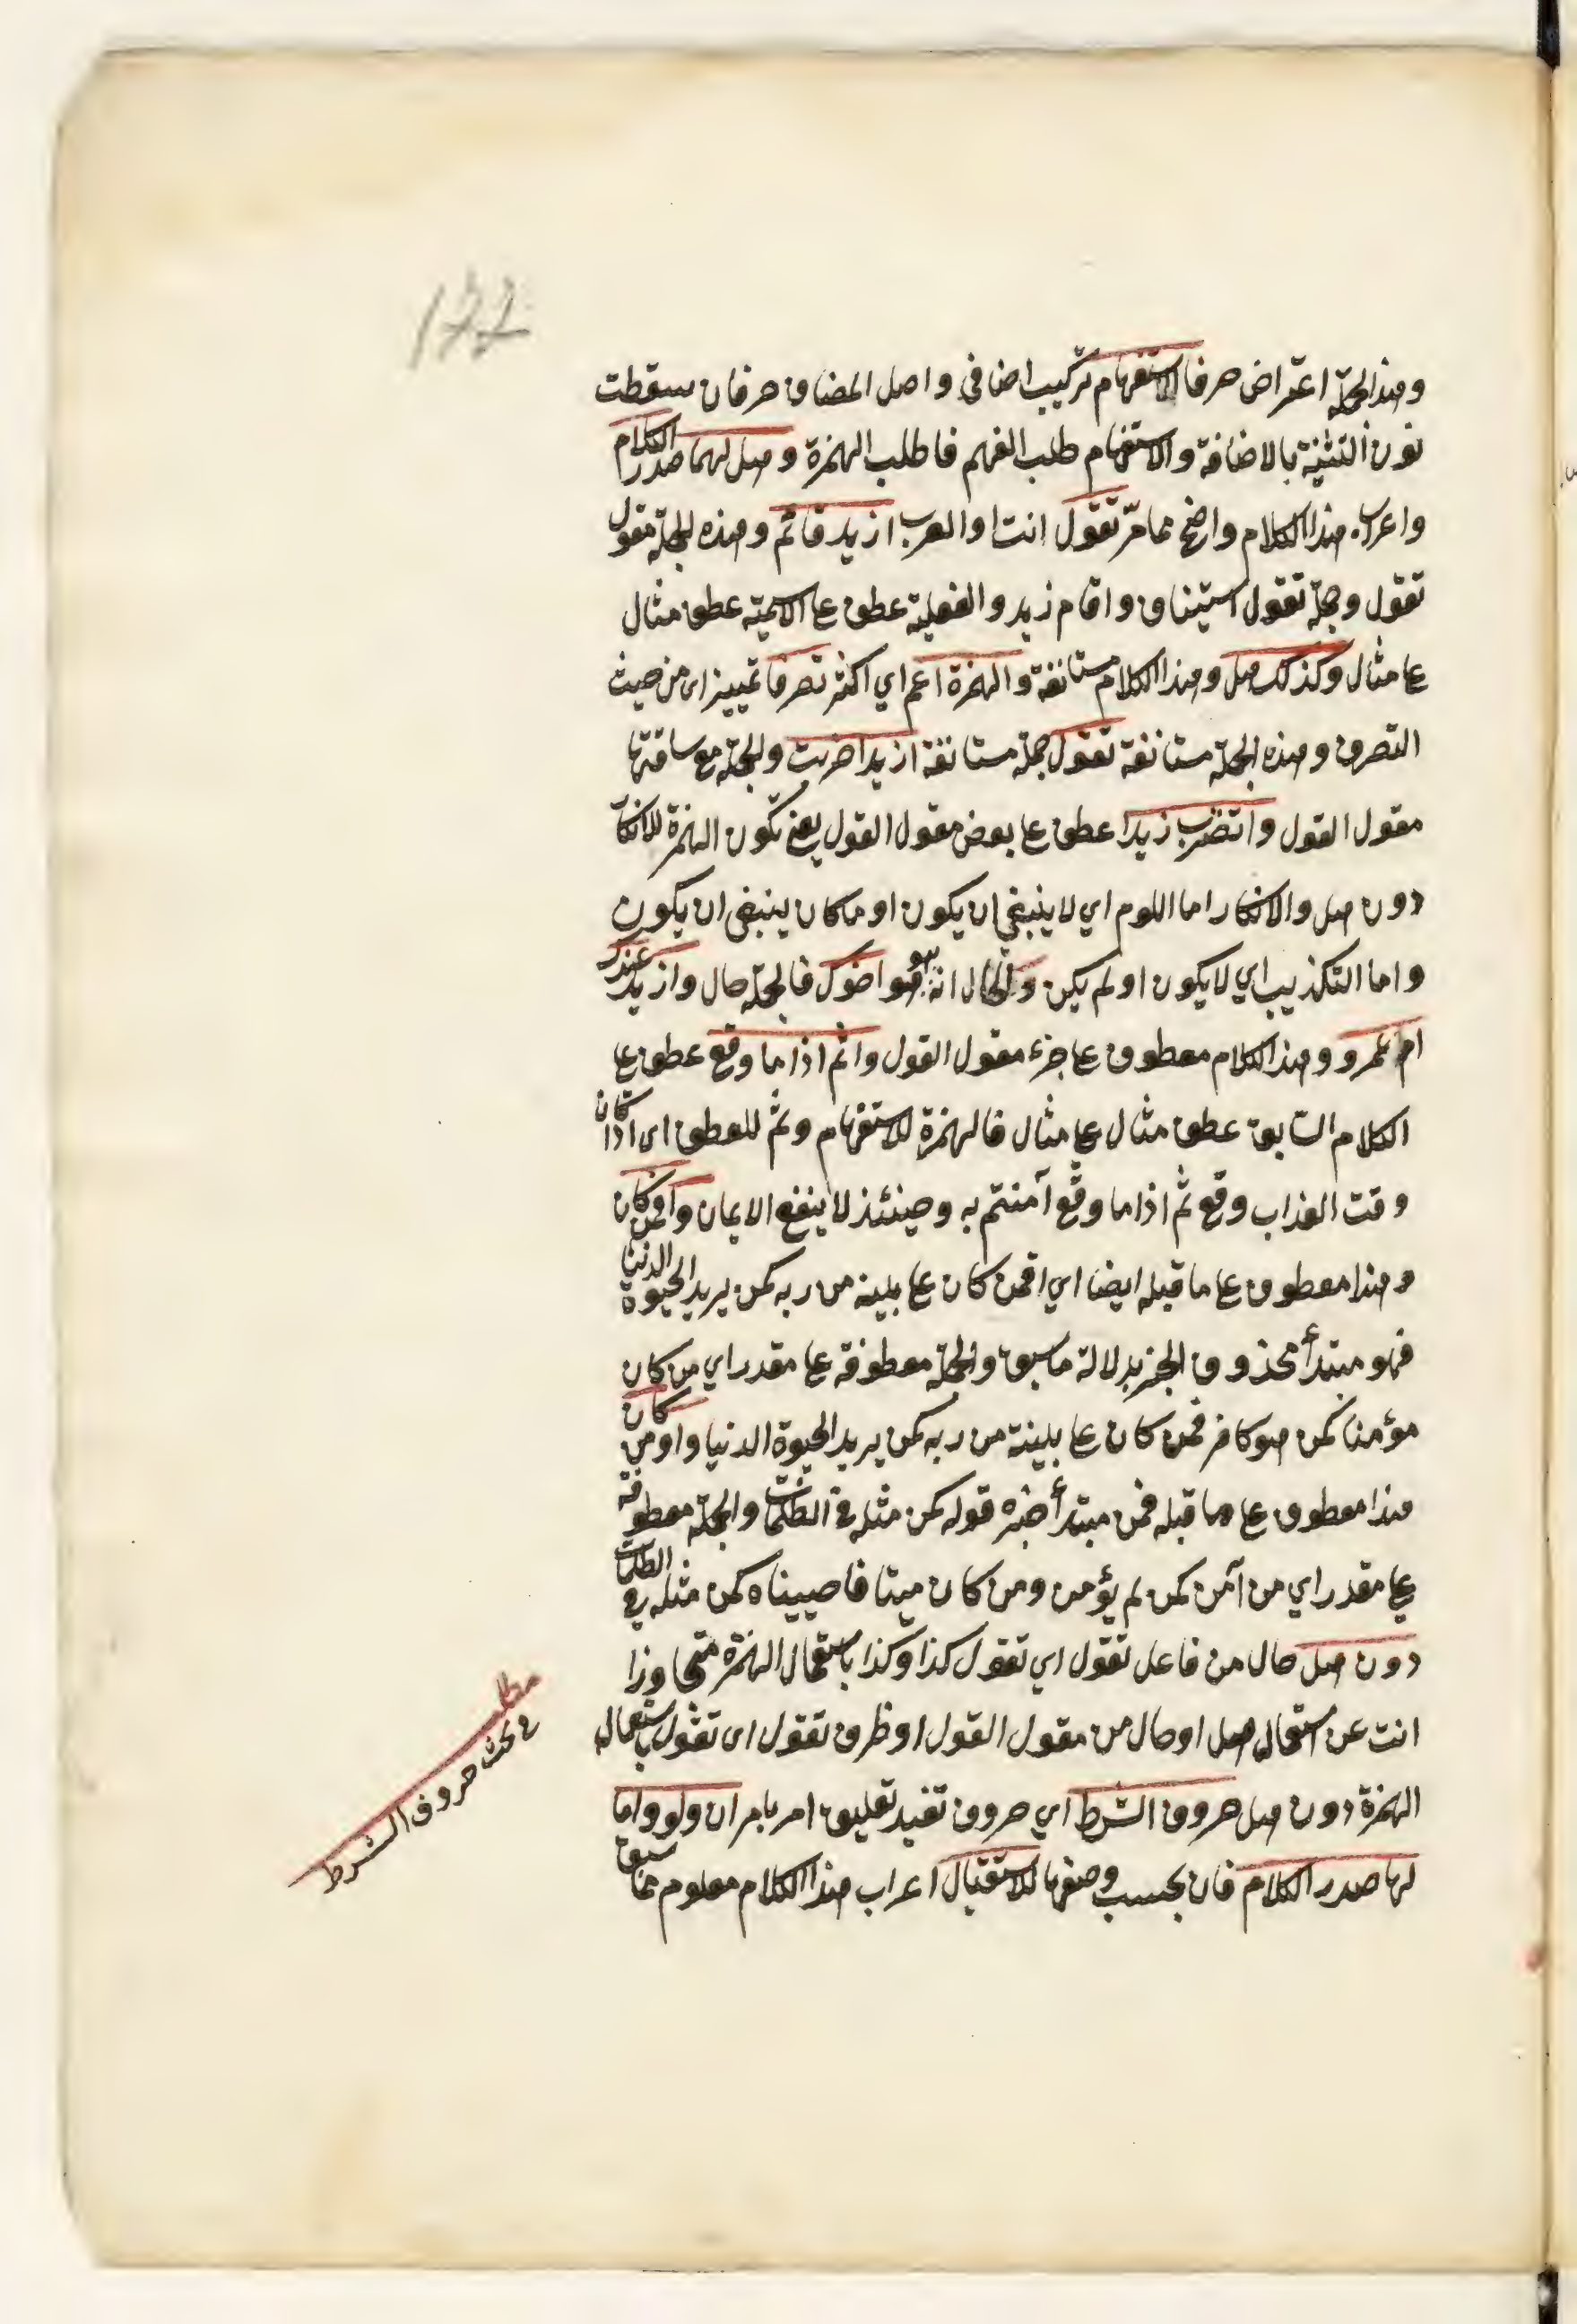 122
وهذا الجملة اعتراض حرفا الاستفهام تركيب اضافى واصل المضاف حرفان سقطت
نون التثنية بالاضافة والاستفهام طلب الفهم فاطلب الهمزة وهل لهما صدر الكلام
واعراب هذا الكلام واضح مما مرّ تقول انت او العرب ازيد قائم وهذه الجملة مقول
تقول وجملة تقول استيناف واقام زيد والفعلية عطف على الاسمية عطف مثال
على مثال وكذلك هل وهذا الكلام مستانفة والهمزة اعم اي اكثر تصرفا تمييز اى من حيث
التصرف وهذه الجملة مستانفة تقول جملة مستانفة ازيدا ضربت والجملة مع ساقتها
مقول القول واتضرب زيدا عطف على بعض مقول القول يعنى تكون الهمزة للانكار
دون هل والانكار اما اللوم اي لا ينبغي ان يكون او ما كان ينبغى ان يكون
واما التكذيب اي لا يكون او لم يكن والحال انه هو اخوك فالجملة حال وازيد عندك
ام عمرو وهذا الكلام معطوف على جزء مقول القول واثم اذا ما وقع عطف على
الكلام السّابق عطف مثال على مثال فالهمزة للاستفهام وثم للعطف اى اذا كان
وقت العذاب وقع ثم اذا ما وقع آمنتم به وحينئذ لا ينفع الايمان وافمن كان
وهذا معطوف على ما قبله ايضا اي افمن كان على بينة من ربه كمن يريد الحيوة الدنيا
فهو مبتدأ محذوف الخبر بدلالة ما سبق والجملة معطوفة على مقدر اي من كان
مؤمنا كمن هو كافر فمن كان على بينة من ربه كمن يريد الحيوة الدنيا واومن كان
هذا معطوف على ما قبله فمن مبتدأ خبره قوله كمن مثله في الظلمات والجملة معطوفة
على مقدر اي من آمن كمن لم يؤمن ومن كان ميتا فاحييناه كمن مثله في الظلمات
دون هل حال من فاعل تقول اي تقول كذا وكذا باستعمال الهمزة متجاوزا
انت عن استعمال هل او حال من مقول القول او ظرف تقول اى تقول باستعمال
الهمزة دون هل حروف الشرط اي حروف تفيد تعليق امر بامر ان ولو واما
لها صدر الكلام فان بحسب وضعها للاستقبال اعراب هذا الكلام معلوم مما سبق
مطلب
في بحث حروف الشرط